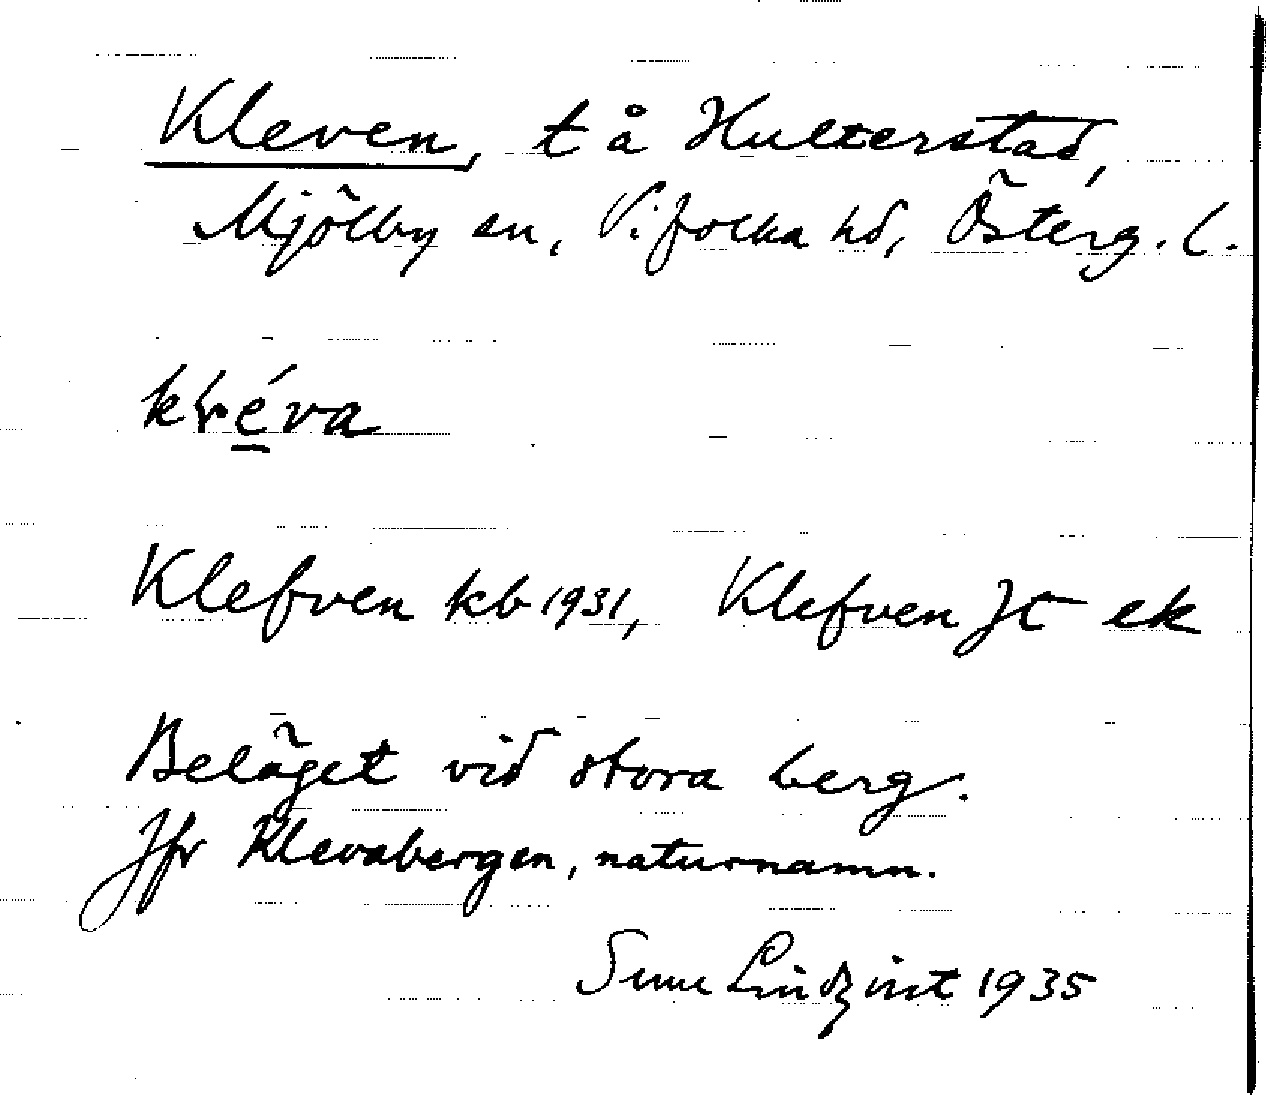 Kleven, t å Hulterstad,
Mjölby sn, Vifolka hd, Österg. l.
kléva
Klefven kb 1931, Klefven Jt ek
Beläget vid stora berg.
Jfr Klevabergen, naturnamn.
Sune Lindqvist 1935